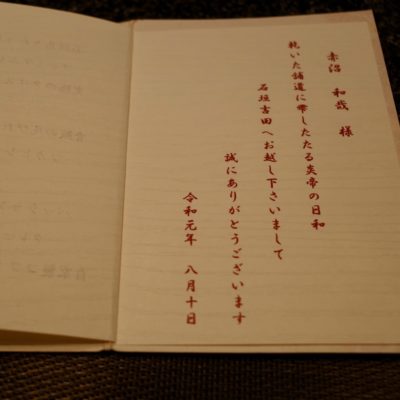 赤沼 和哉 様
乾いた舗道に雫したたる炎帝の日和
石垣吉田へお越し下さいまして
誠にありがとうございます
令和元年 八月十日